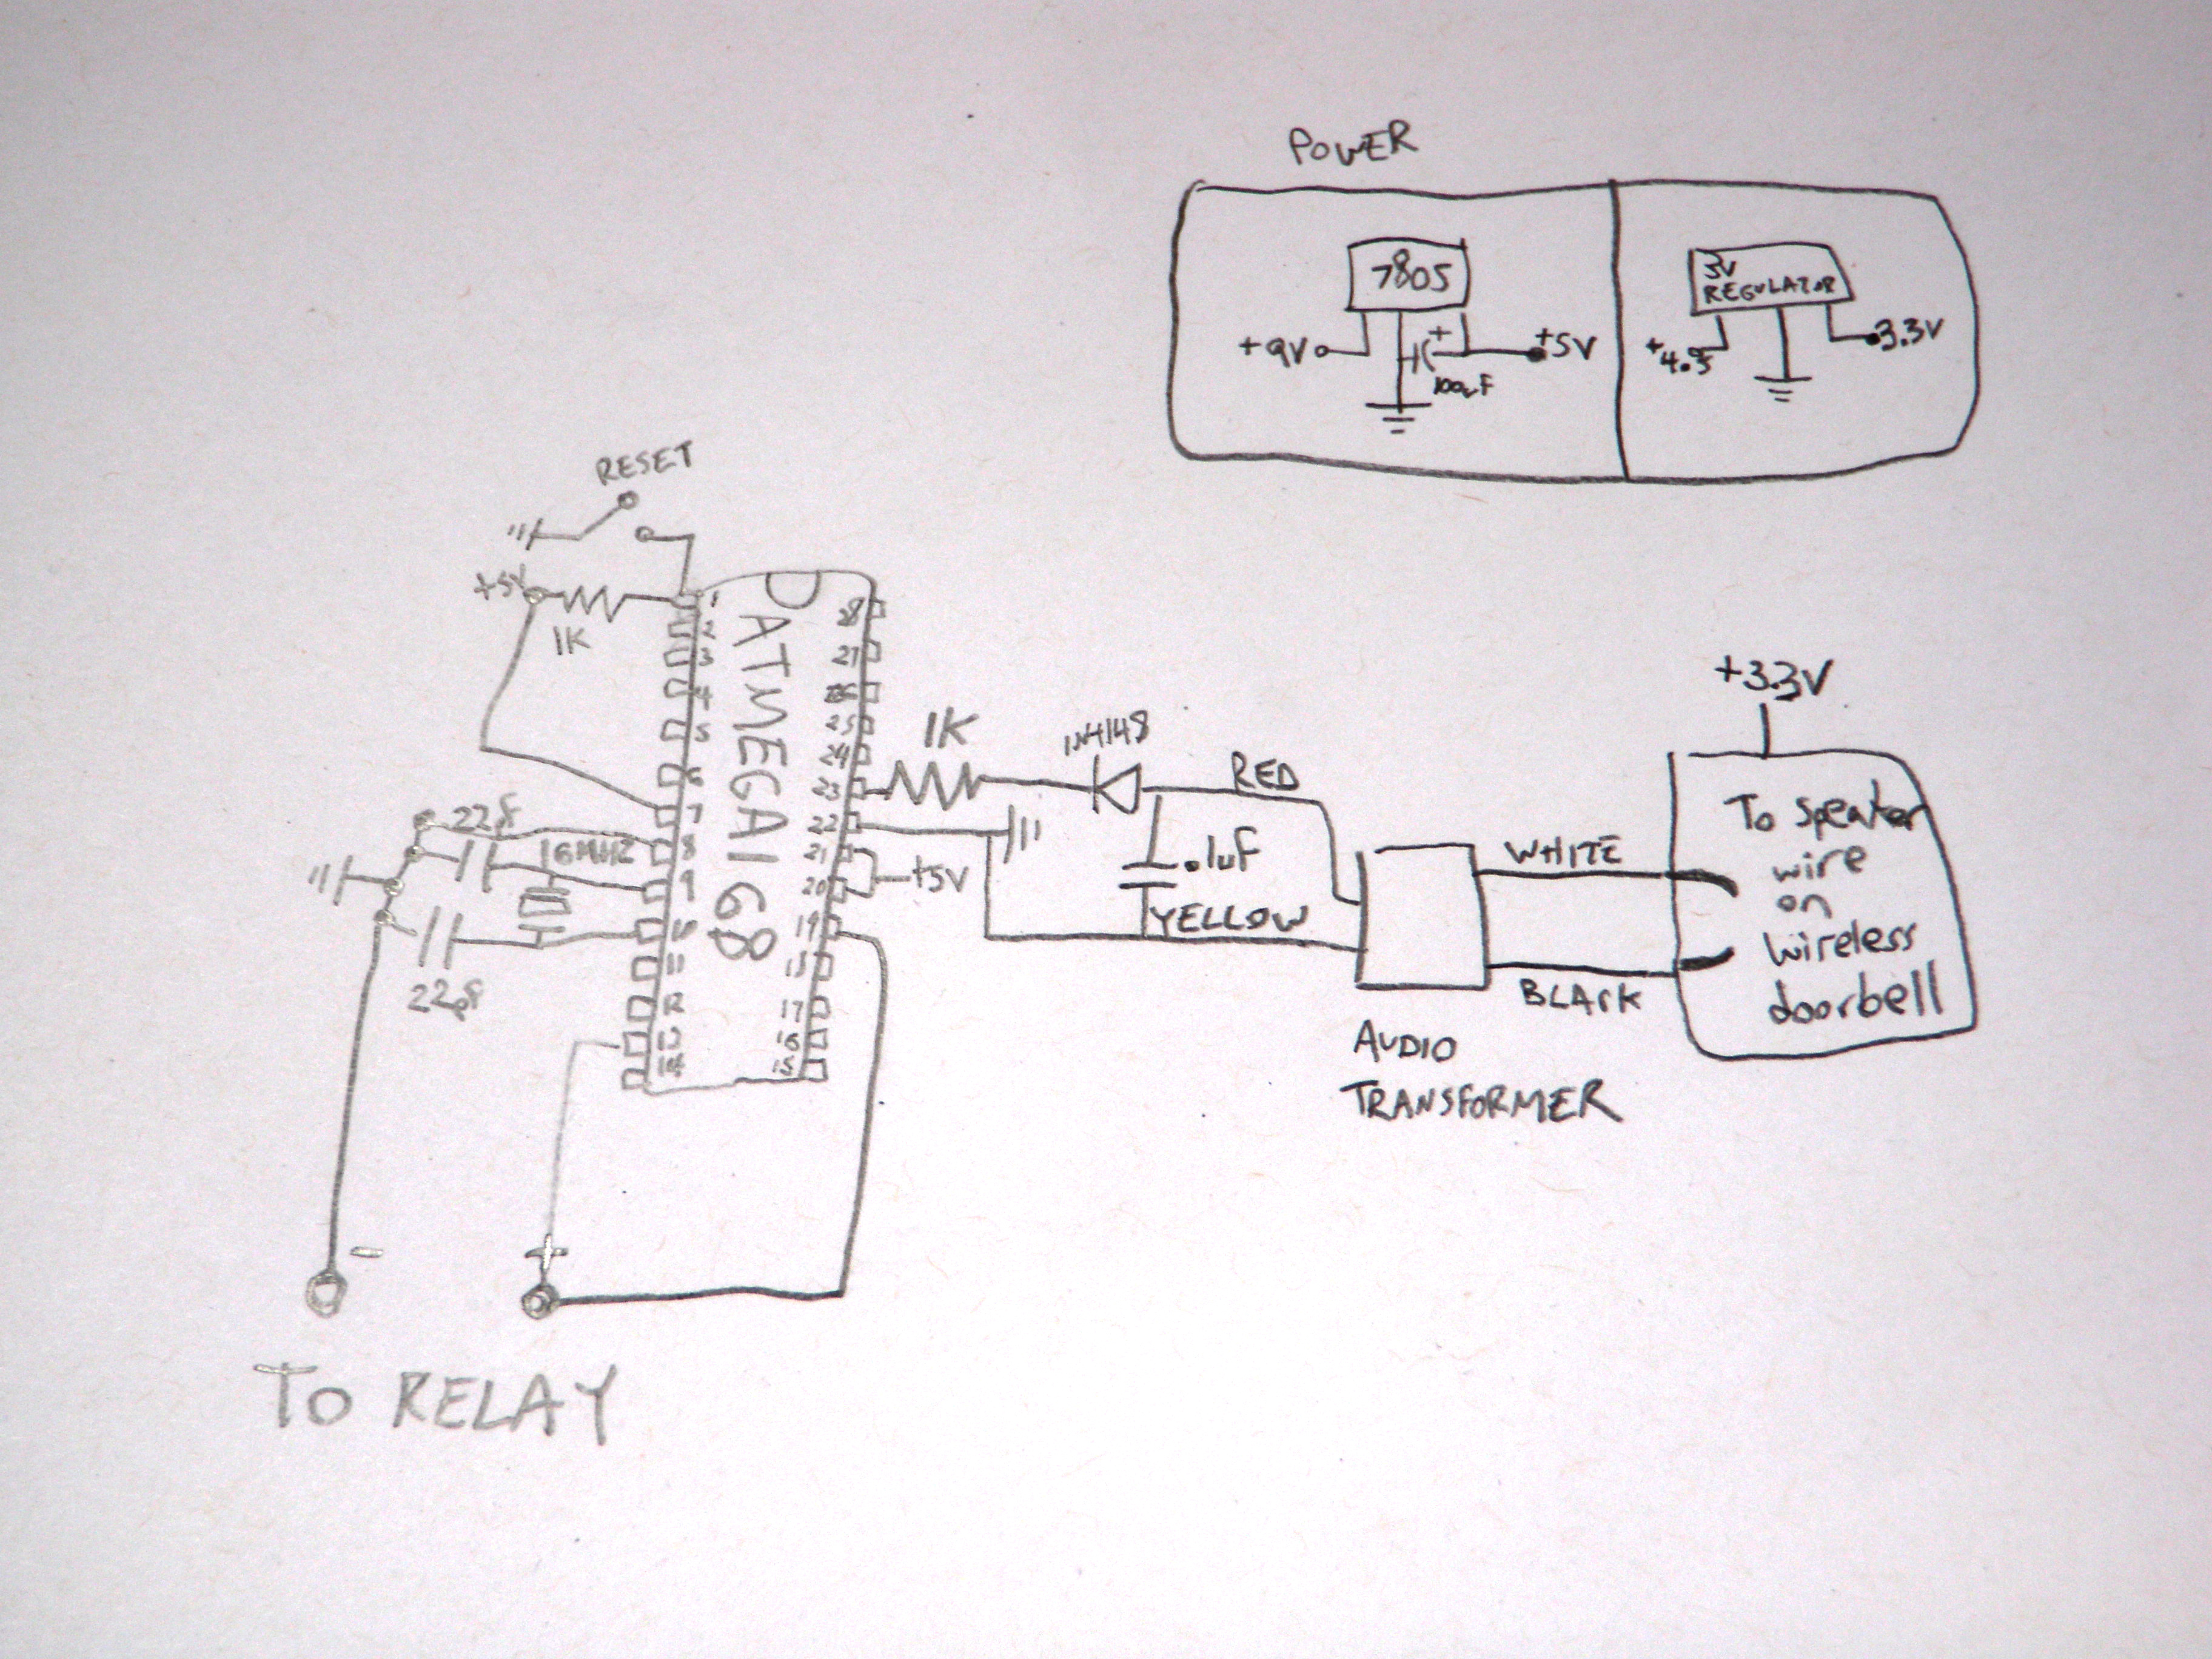 POWER
7805
+9V
+
100uF
+5V
3V
REGULATOR
+4.5
3.3V
RESET
+5V
1K
ATMEGA168
1
2
3
4
5
6
7
8
9
10
11
12
13
14
28
27
26
25
24
23
22
21
20
19
17
16
15
22pf
16MHZ
22pf
1K
1N4148
RED
+5V
.1uF
YELLOW
WHITE
BLACK
AUDIO
TRANSFORMER
+3.3V
To speaker
wire
on
wireless
doorbell
-
+
TO RELAY